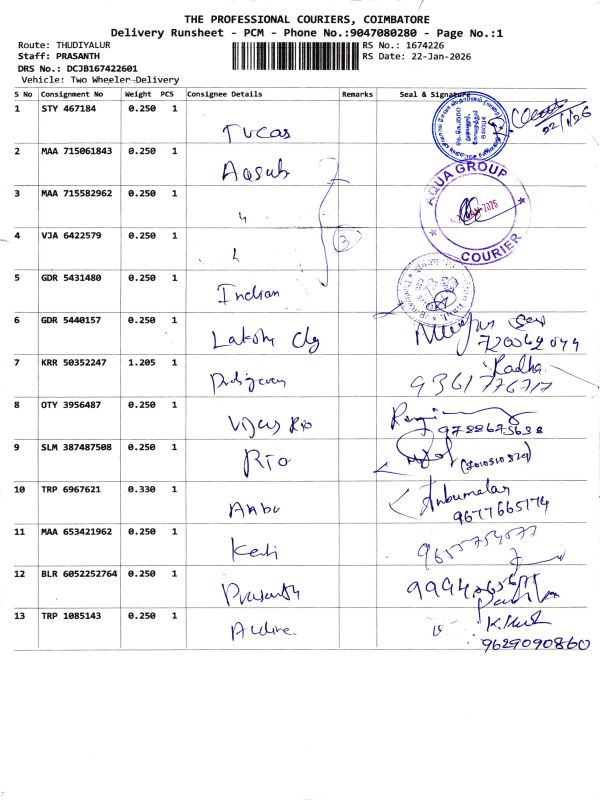 THE PROFESSIONAL COURIERS, COIMBATORE
Delivery Runsheet - PCM - Phone No.:9047080280 - Page No.:1
Route: THUDIYALUR RS No.: 1674226
Staff: PRASANTH RS Date: 22-Jan-2026
DRS No.: DCJB167422601
Vehicle: Two Wheeler-Delivery
S No Consignment No Weight PCS Consignee Details Remarks Seal & Signature
1 STY 467184 0.250 1 Tucas 22/1/26
2 MAA 715061843 0.250 1 AQUA GROUP
3 MAA 715582962 0.250 1 "
4 VJA 6422579 0.250 1 " 3 COURIER
5 GDR 5431480 0.250 1 Indian
6 GDR 5440157 0.250 1 Lakshmi
7 KRR 50352247 1.205 1 Radha
9361776717
8 OTY 3956487 0.250 1 Vijas Rio
9788675638
9 SLM 387487508 0.250 1 Rio
10 TRP 6967621 0.330 1 Anbu Anbumalar
9677665174
11 MAA 653421962 0.250 1
12 BLR 6052252764 0.250 1 Prasanth
13 TRP 1085143 0.250 1
9629090860